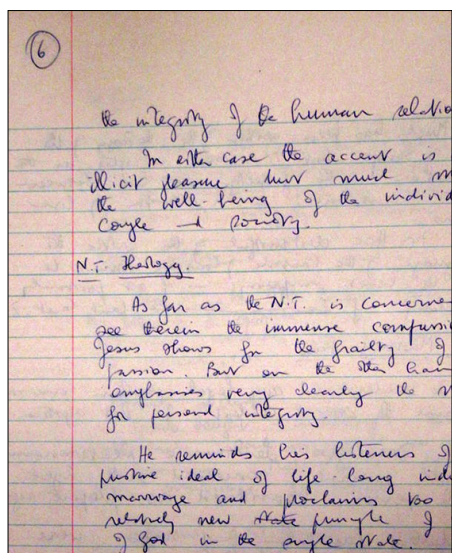 6
the integrity of the human relatio
In either case the accent is
illicit pleasure but much m
the well-being of the individ
couple society.
N.T. Theology.
As far as the N.T. is concerne
see therein the immense compassi
Jesus shows for the frailty of
passion. But on the other han
emphasises very clearly the
for personal integrity
He reminds his listeners of
pristine ideal of life-long ind
marriage and proclaims too
relatively new principle of
of God in the single state.